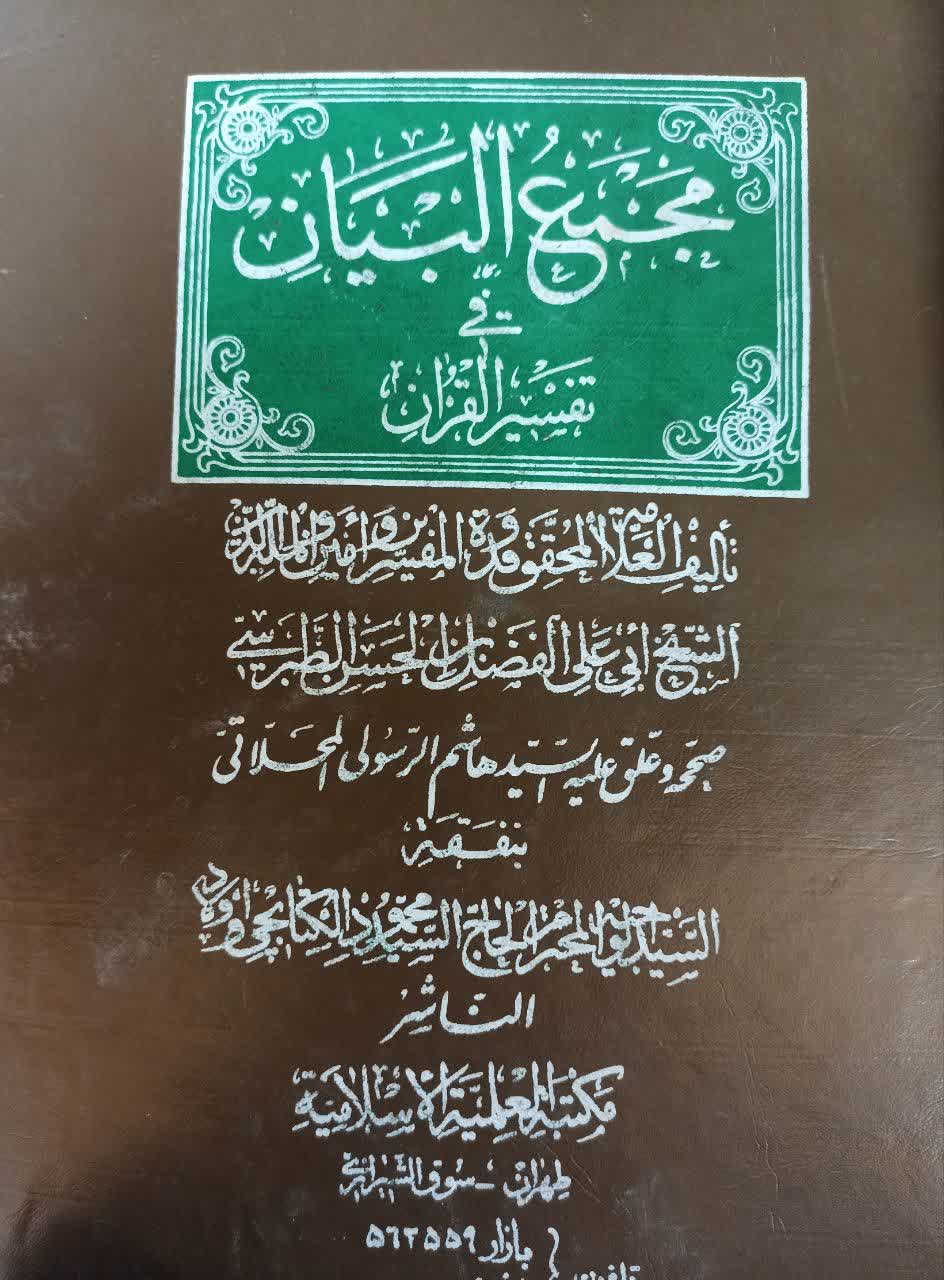 مجمع البيان
في
تفسير القرآن
تأليف العلامة المحقق وقدوة المفسرين وأمين الملة والدين
الشيخ أبي علي الفضل بن الحسن الطبرسي
صححه وعلق عليه السيد هاشم الرسولي المحلاتي
بنفقة
السيد الجليل المحترم الحاج السيد محمود الكتابچي وأولاده
الناشر
مكتبة العلمية الإسلامية
طهران - سوق الشيرازي
بازار ۵۶۲۵۵۹
تلفون